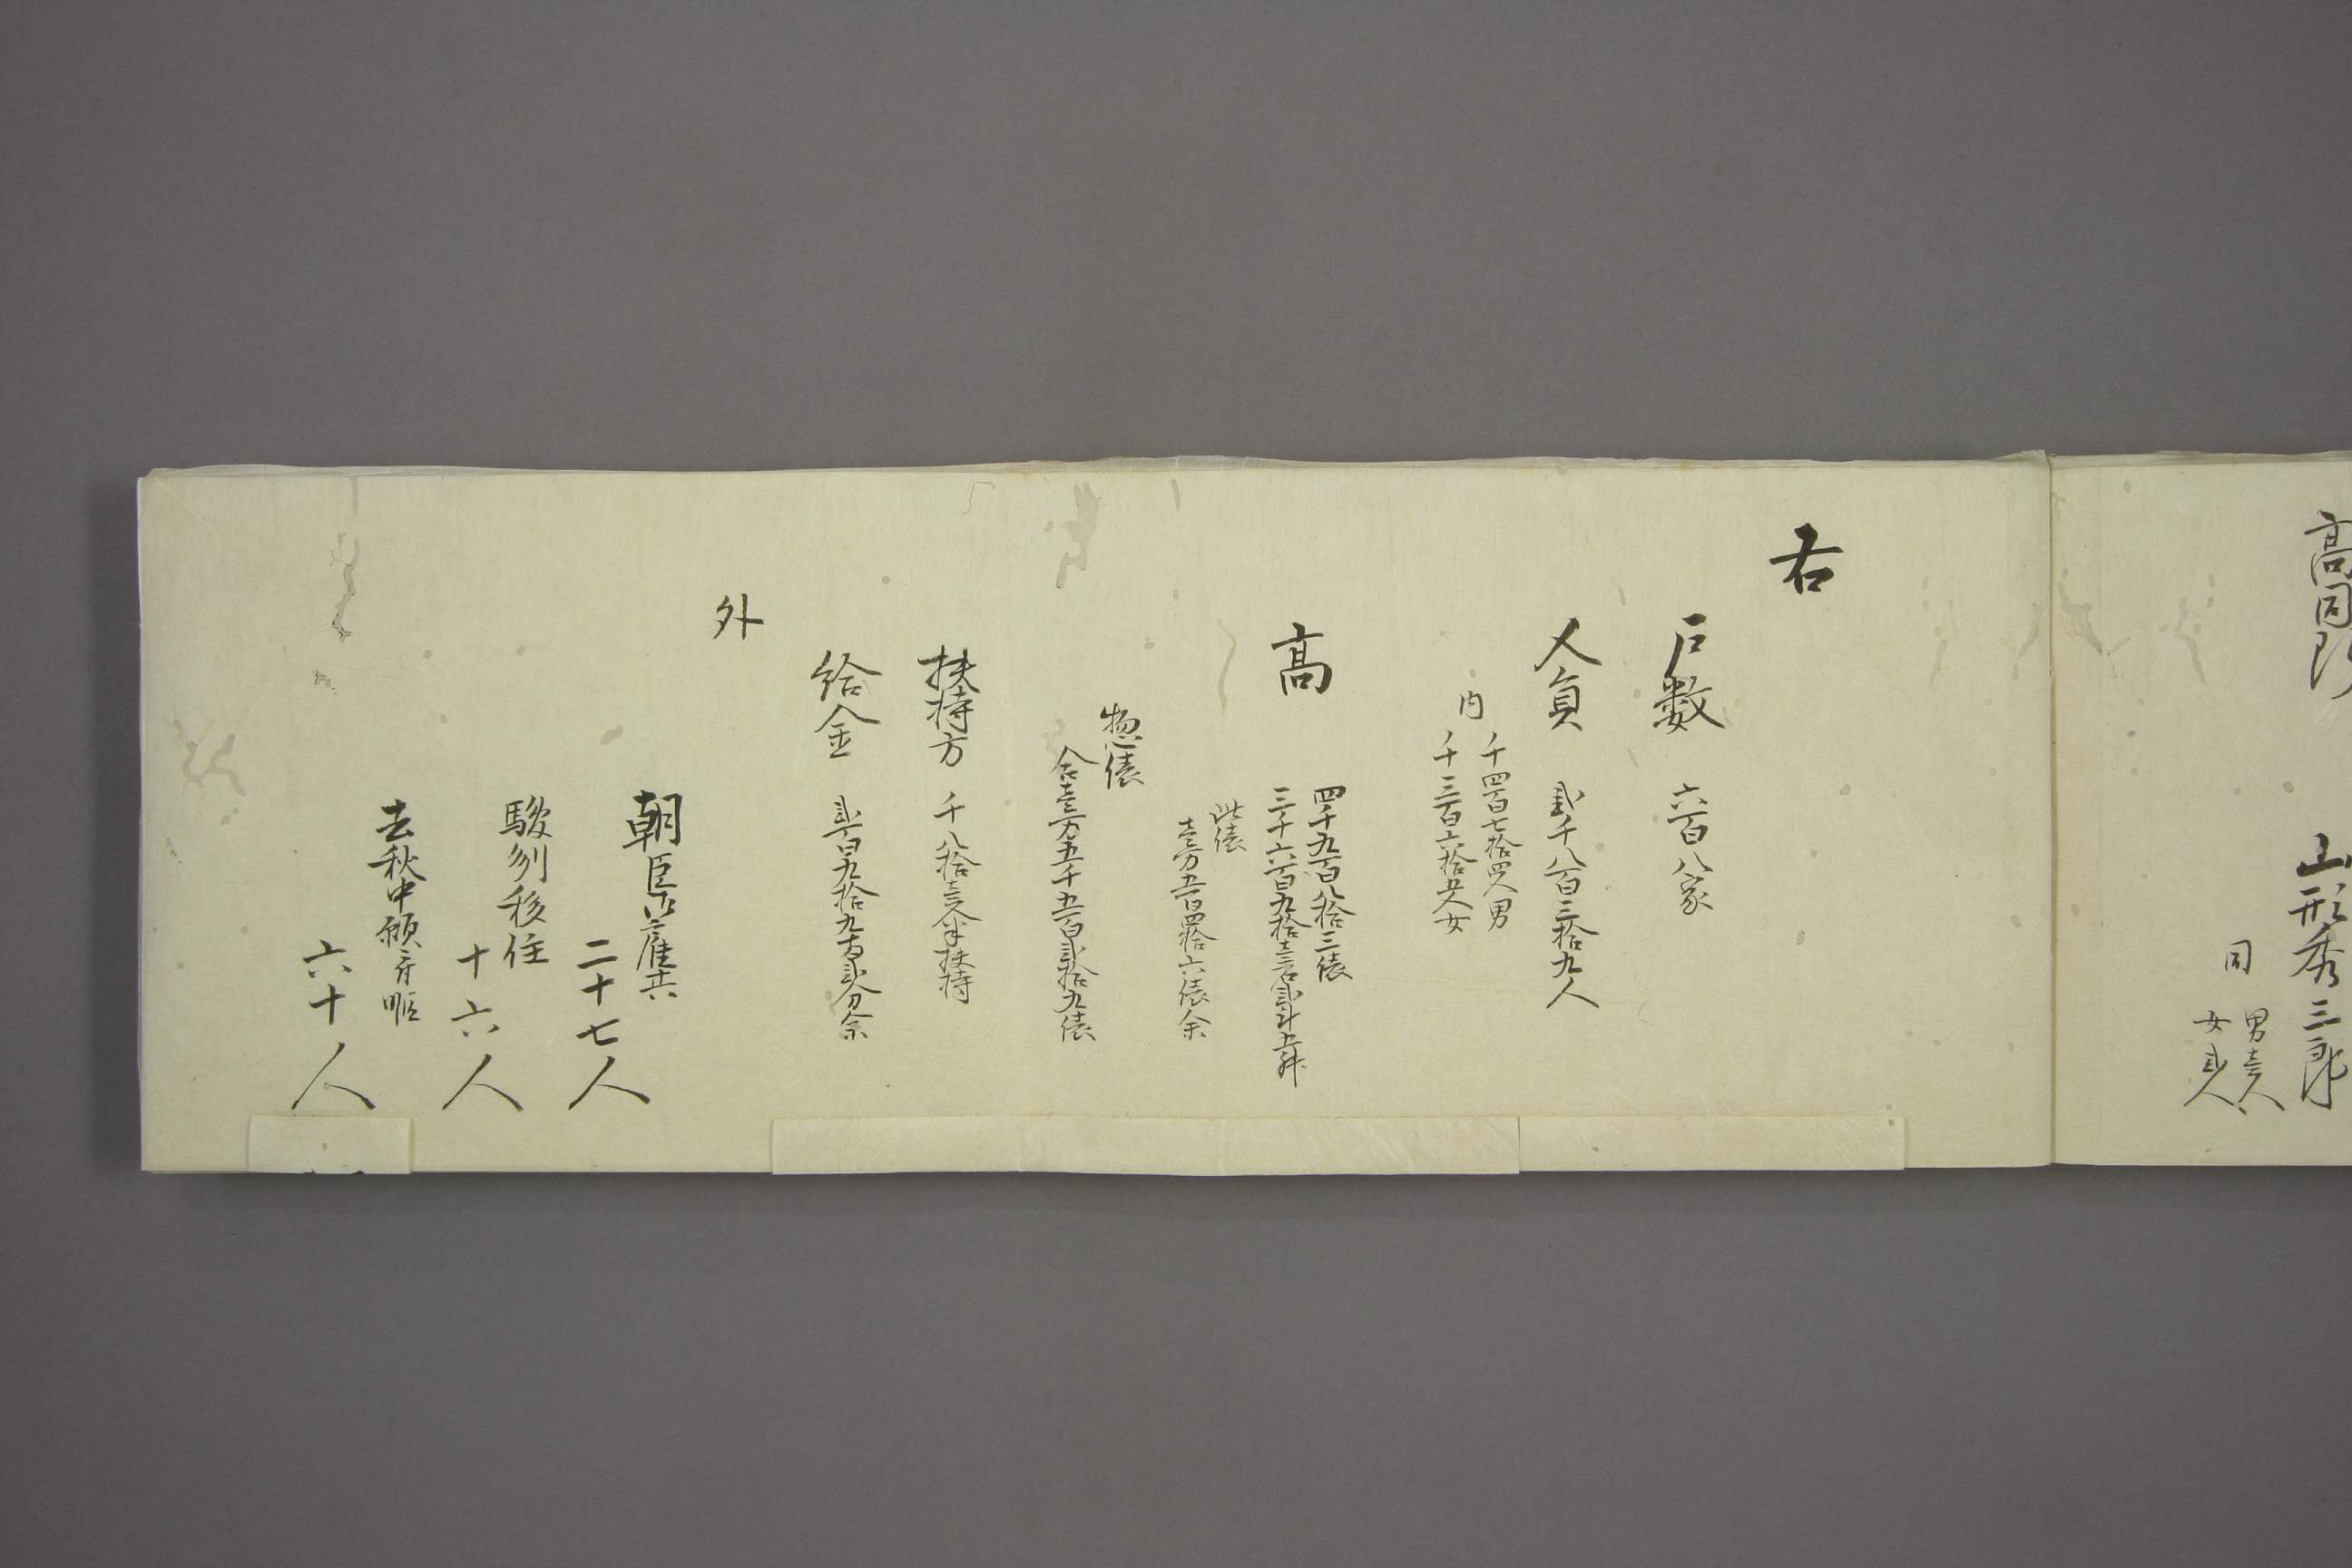 高同断
山形秀三郎
同
男壱人
女弐人
右
戸数 六百八家
人員 弐千八百三拾九人
内
千四百七拾四人男
千三百六拾五人女
高
四千九百八拾三俵
三千六百九拾壱石弐斗五舛
此俵
壱万五百四拾六俵余
惣俵
合壱万五千五百弐拾九俵
扶持方 千八拾壱人半扶持
給金 弐百九拾九両弐分余
外
朝臣
二十七人
駿州移住
十六人
去秋中願
六十人